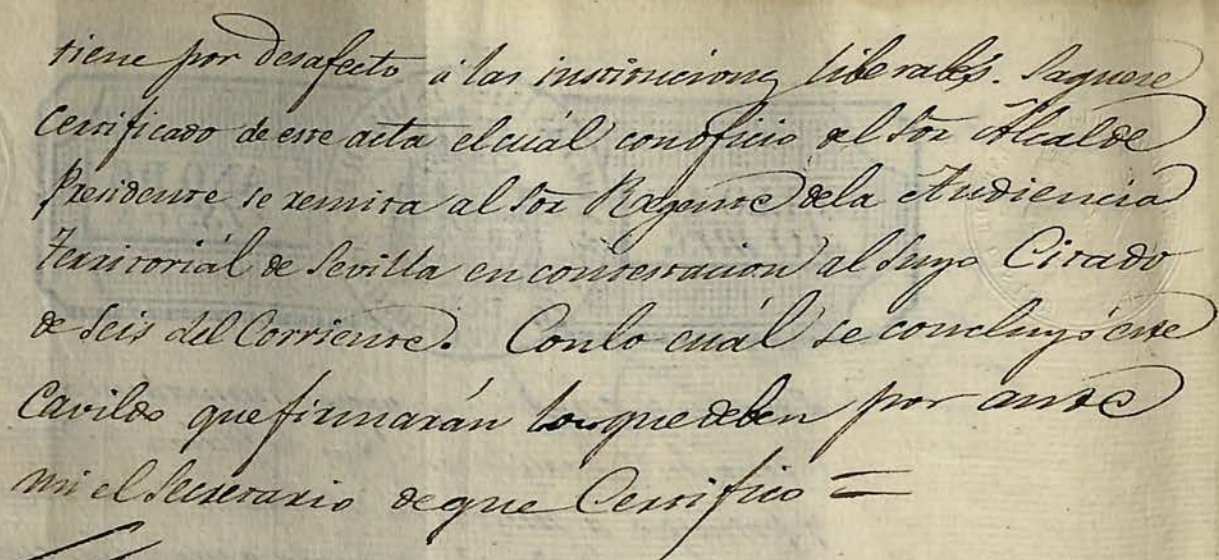 tiene por desafecto á las instituciones liberales. Saquese
Certificado de este acta el cuál con oficio del Sor Alcalde
Presidente se remita al Sor Regente de la Audiencia
Territoriál de Sevilla en contestacion al Suyo Citado
de Seis del Corriente. Con lo cuál se concluyó este
Cavildo que firmarán los que deben por ante
mi el Secretario de que Certifico =